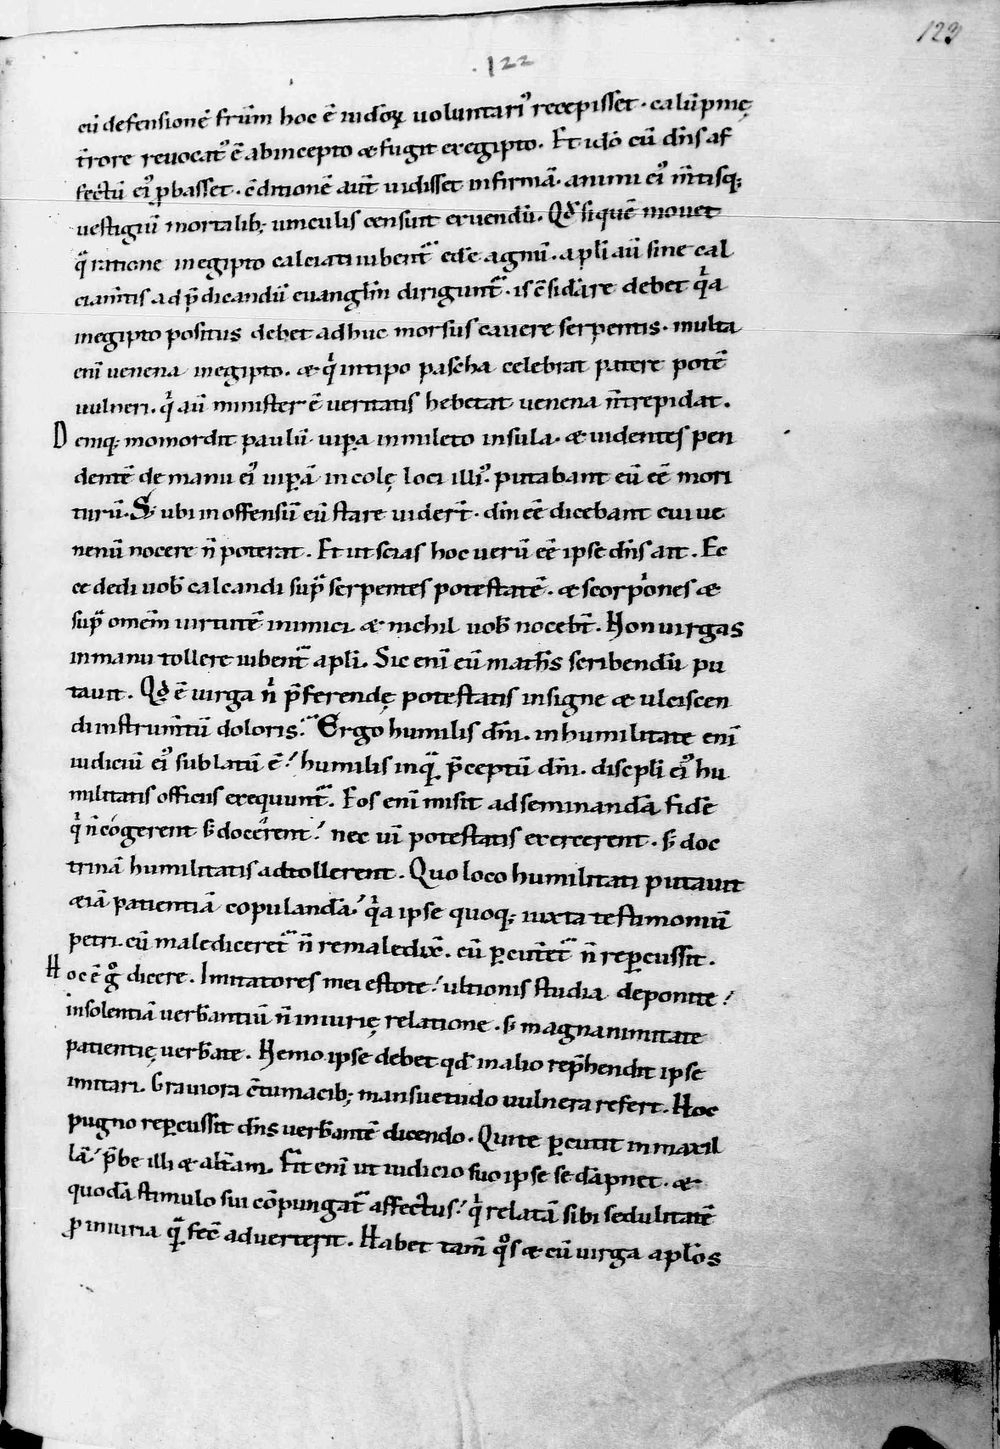 123
.122
cū defensionē frūm hoc ē iudęoꝝ uoluntariꝰ recepisset · calūpnię
t̄rore reuocatꝰ ē ab incepto & fugit ex egipto. Et idō cū dn̄s af
fectū eiꝰ ꝓbasset · c̄ditionē aut̄ uidisset infirmā · animi eiꝰ m̄tisq;
uestigiū mortalib; uinculis censuit exuendū. Qd̄ siquē mouet
qͣ ratione in egipto calciati iubent᷑ edē agnū · apl̄i aū sine cal
ciam̄tis ad p̄dicandū euangl̄m dirigunt᷑ · is c̄sid̄are debet qͥa
in egipto positus debet adhuc morsus cauere serpentis · multa
eni uenena in egipto. & qͥ in tipo pascha celebrat patere potē
uulneri. qͥ aū minister ē ueritatis hebetat uenena n̄ trepidat.
Deniq; momordit paulū uiꝑa in mileto insula · & uidentes pen
dentē de manu eiꝰ uiꝑā incolę loci illiꝰ putabant eū eē mori
turū. S; ubi inoffensū eū stare uider̄t · dm̄ eē dicebant cui ue
nenū nocere n̄ poterat. Et ut scias hoc uerū eē ipse dn̄s ait. Ec
ce dedi uob̄ calcandi supͣ serpentes potestatē · & scorpͥones &
supͣ omem̄ uirtutē inimici & nichil uob̄ noceb̄t. Non uirgas
in manu tollere iubent᷑ apl̄i. Sic eni eū math̄s scribendū pu
tauit. Qd̄ ē uirga nͥ p̄ferendę potestatis insigne & ulciscen
di instrum̄tū doloris? Ergo humilis dn̄i · in humilitate eni
iudiciū eiꝰ sublatū ē! humilis inqͣ p̄ceptū dn̄i · discipl̄i eiꝰ hu
militatis officiis exequunt᷑. Eos eni misit ad seminandā fidē
qͥ n̄ cogerent s̄ docerent! nec uī potestatis exercerent · s̄ doc
trinā humilitatis adtollerent. Quo loco humilitati putauit
&iā patientiā copulandā! qͥa ipse quoq; iuxta testimoniū
petri cū malediceret᷑ n̄ remaledix̄ · cū ꝑcut̄et᷑ n̄ reꝑcussit.
Hoc ē gͦ dicere. Imitatores mei estote! ultionis studia deponite!
insolentiā uerb̄antiū n̄ iniurię relatione · s̄ magnanimitate
patientię uerb̄ate. Nemo ipse debet qd̄ in alio rep̄hendit ipse
imitari. Grauiora c̄tumacib; mansuetudo uulnera refert. Hoc
pugno reꝑcussit dn̄s uerb̄antē dicendo. Qui te ꝑcutit in maxil
lā! p̄be illi & alt̄am. Fit eni ut iudicio suo ipse se dāpnet · &
quodā stimulo sui cōpungat᷑ affectus! qͥ relatā sibi sedulitatē
ꝓ iniuria qͣ fec̄ aduerterit. Habet tam̄ qͦs & cū uirga apl̄os